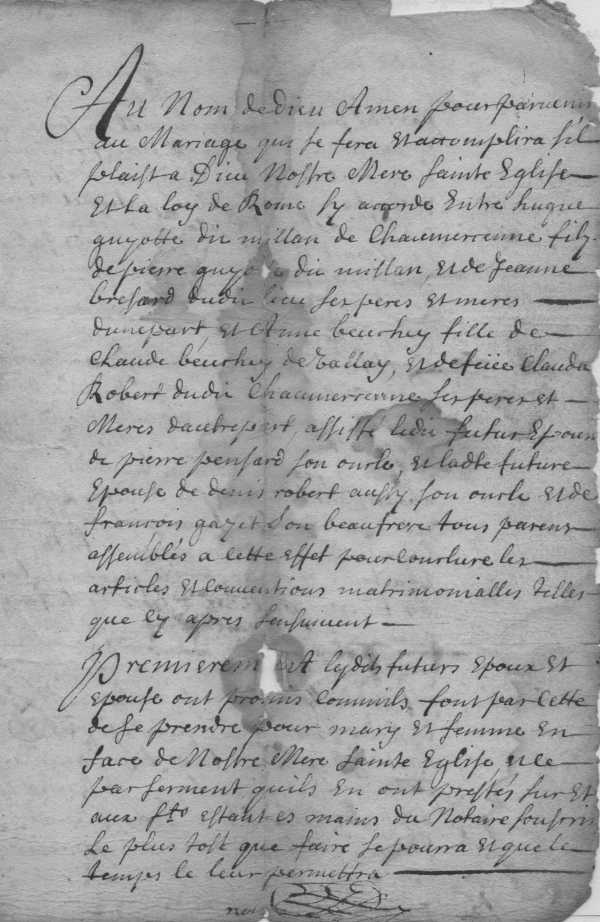 Au Nom de Dieu Amen pour parvenir
au Mariage qui se fera et accomplira s'il
plaist a Dieu Nostre Mere Sainte Eglise
Et la loy de Rome sy accorde Entre hugue
guyotte dit millan de Chaumercenne filz
de pierre guyotte dit millan, et de Jeanne
bresard dudit lieu ses peres et meres
dune part, et Anne beuchey fille de
Claude beuchey de Vallay, et de feüe Clauda
Robert dudit Chaumercenne ses peres et
Meres dautrepart, assisté ledit futur Epoux
de pierre pensard son oncle, et ladte future
Epouse de denis robert aussy son oncle et de
francois gazet son beaufrere tous parens
assemblés a cette effet pour conclure les
articles et conventions matrimonialles telles
que cy apres sensuivent
Premierement lesdits futurs Epoux et
Epouse ont promis comm'ils font par cette
de se prendre pour mary et femme en
face de Nostre Mere Sainte Eglise, et ce
par serment quils En ont prestés sur et
aux estant es mains du Notaire soussigné
Le plus tost que faire se pourra et que le
temps le leur permettra